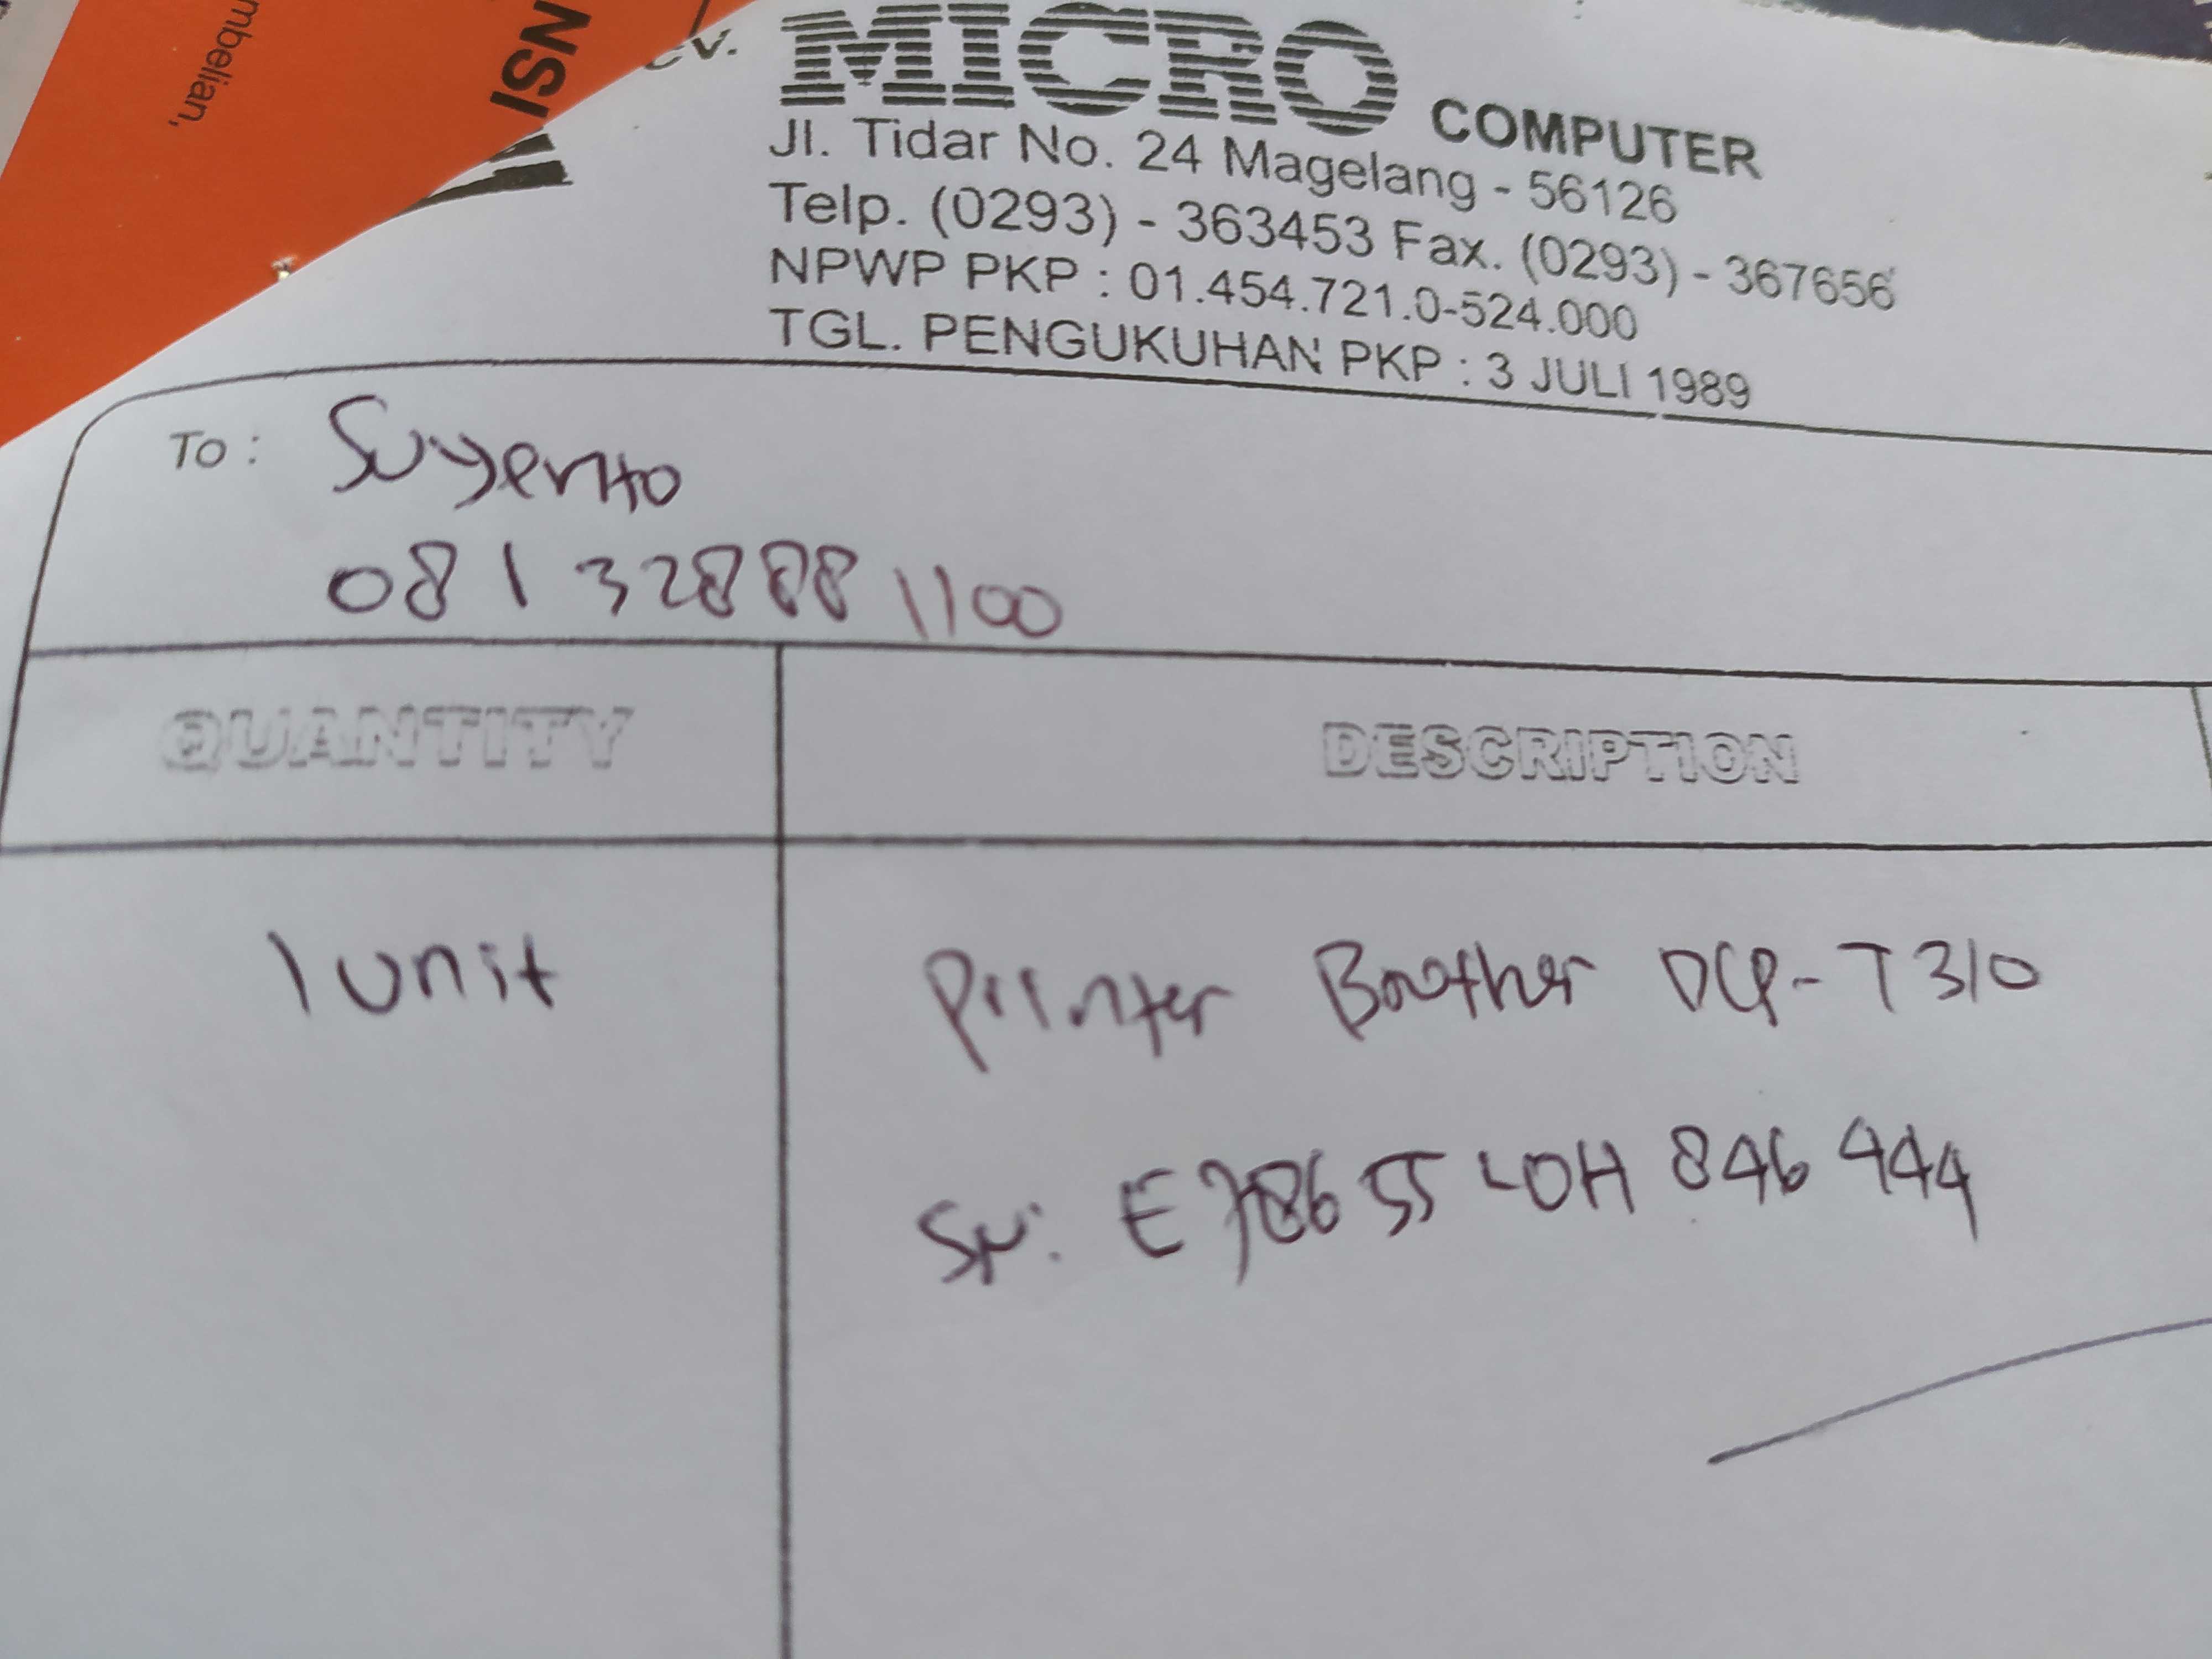 mbelian,
NSI
CV. MICRO COMPUTER
Jl. Tidar No. 24 Magelang - 56126
Telp. (0293) - 363453 Fax. (0293) - 367656
NPWP PKP : 01.454.721.0-524.000
TGL. PENGUKUHAN PKP : 3 JULI 1989
To : Sugento
081328881100
QUANTITY DESCRIPTION
1 unit Printer Brother DCP-T310
SN: E78655L0H846444